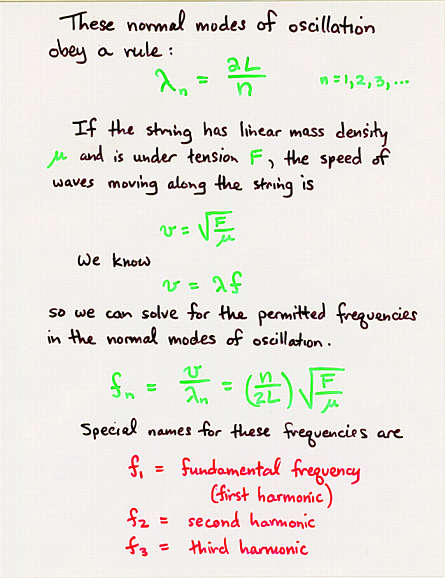 These normal modes of oscillation
obey a rule:
λₙ = 2L/n    n = 1, 2, 3, ...
If the string has linear mass density
μ and is under tension F, the speed of
waves moving along the string is
v = √(F/μ)
We know
v = λf
so we can solve for the permitted frequencies
in the normal modes of oscillation.
fₙ = v/λₙ = (n/2L) √(F/μ)
Special names for these frequencies are
f₁ = fundamental frequency
(first harmonic)
f₂ = second harmonic
f₃ = third harmonic